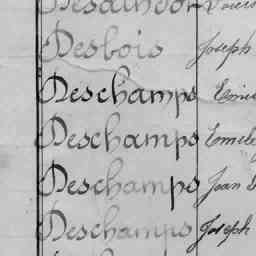 Desbois Joseph
Deschamps
Deschamps Emile
Deschamps Jean
Deschamps Joseph